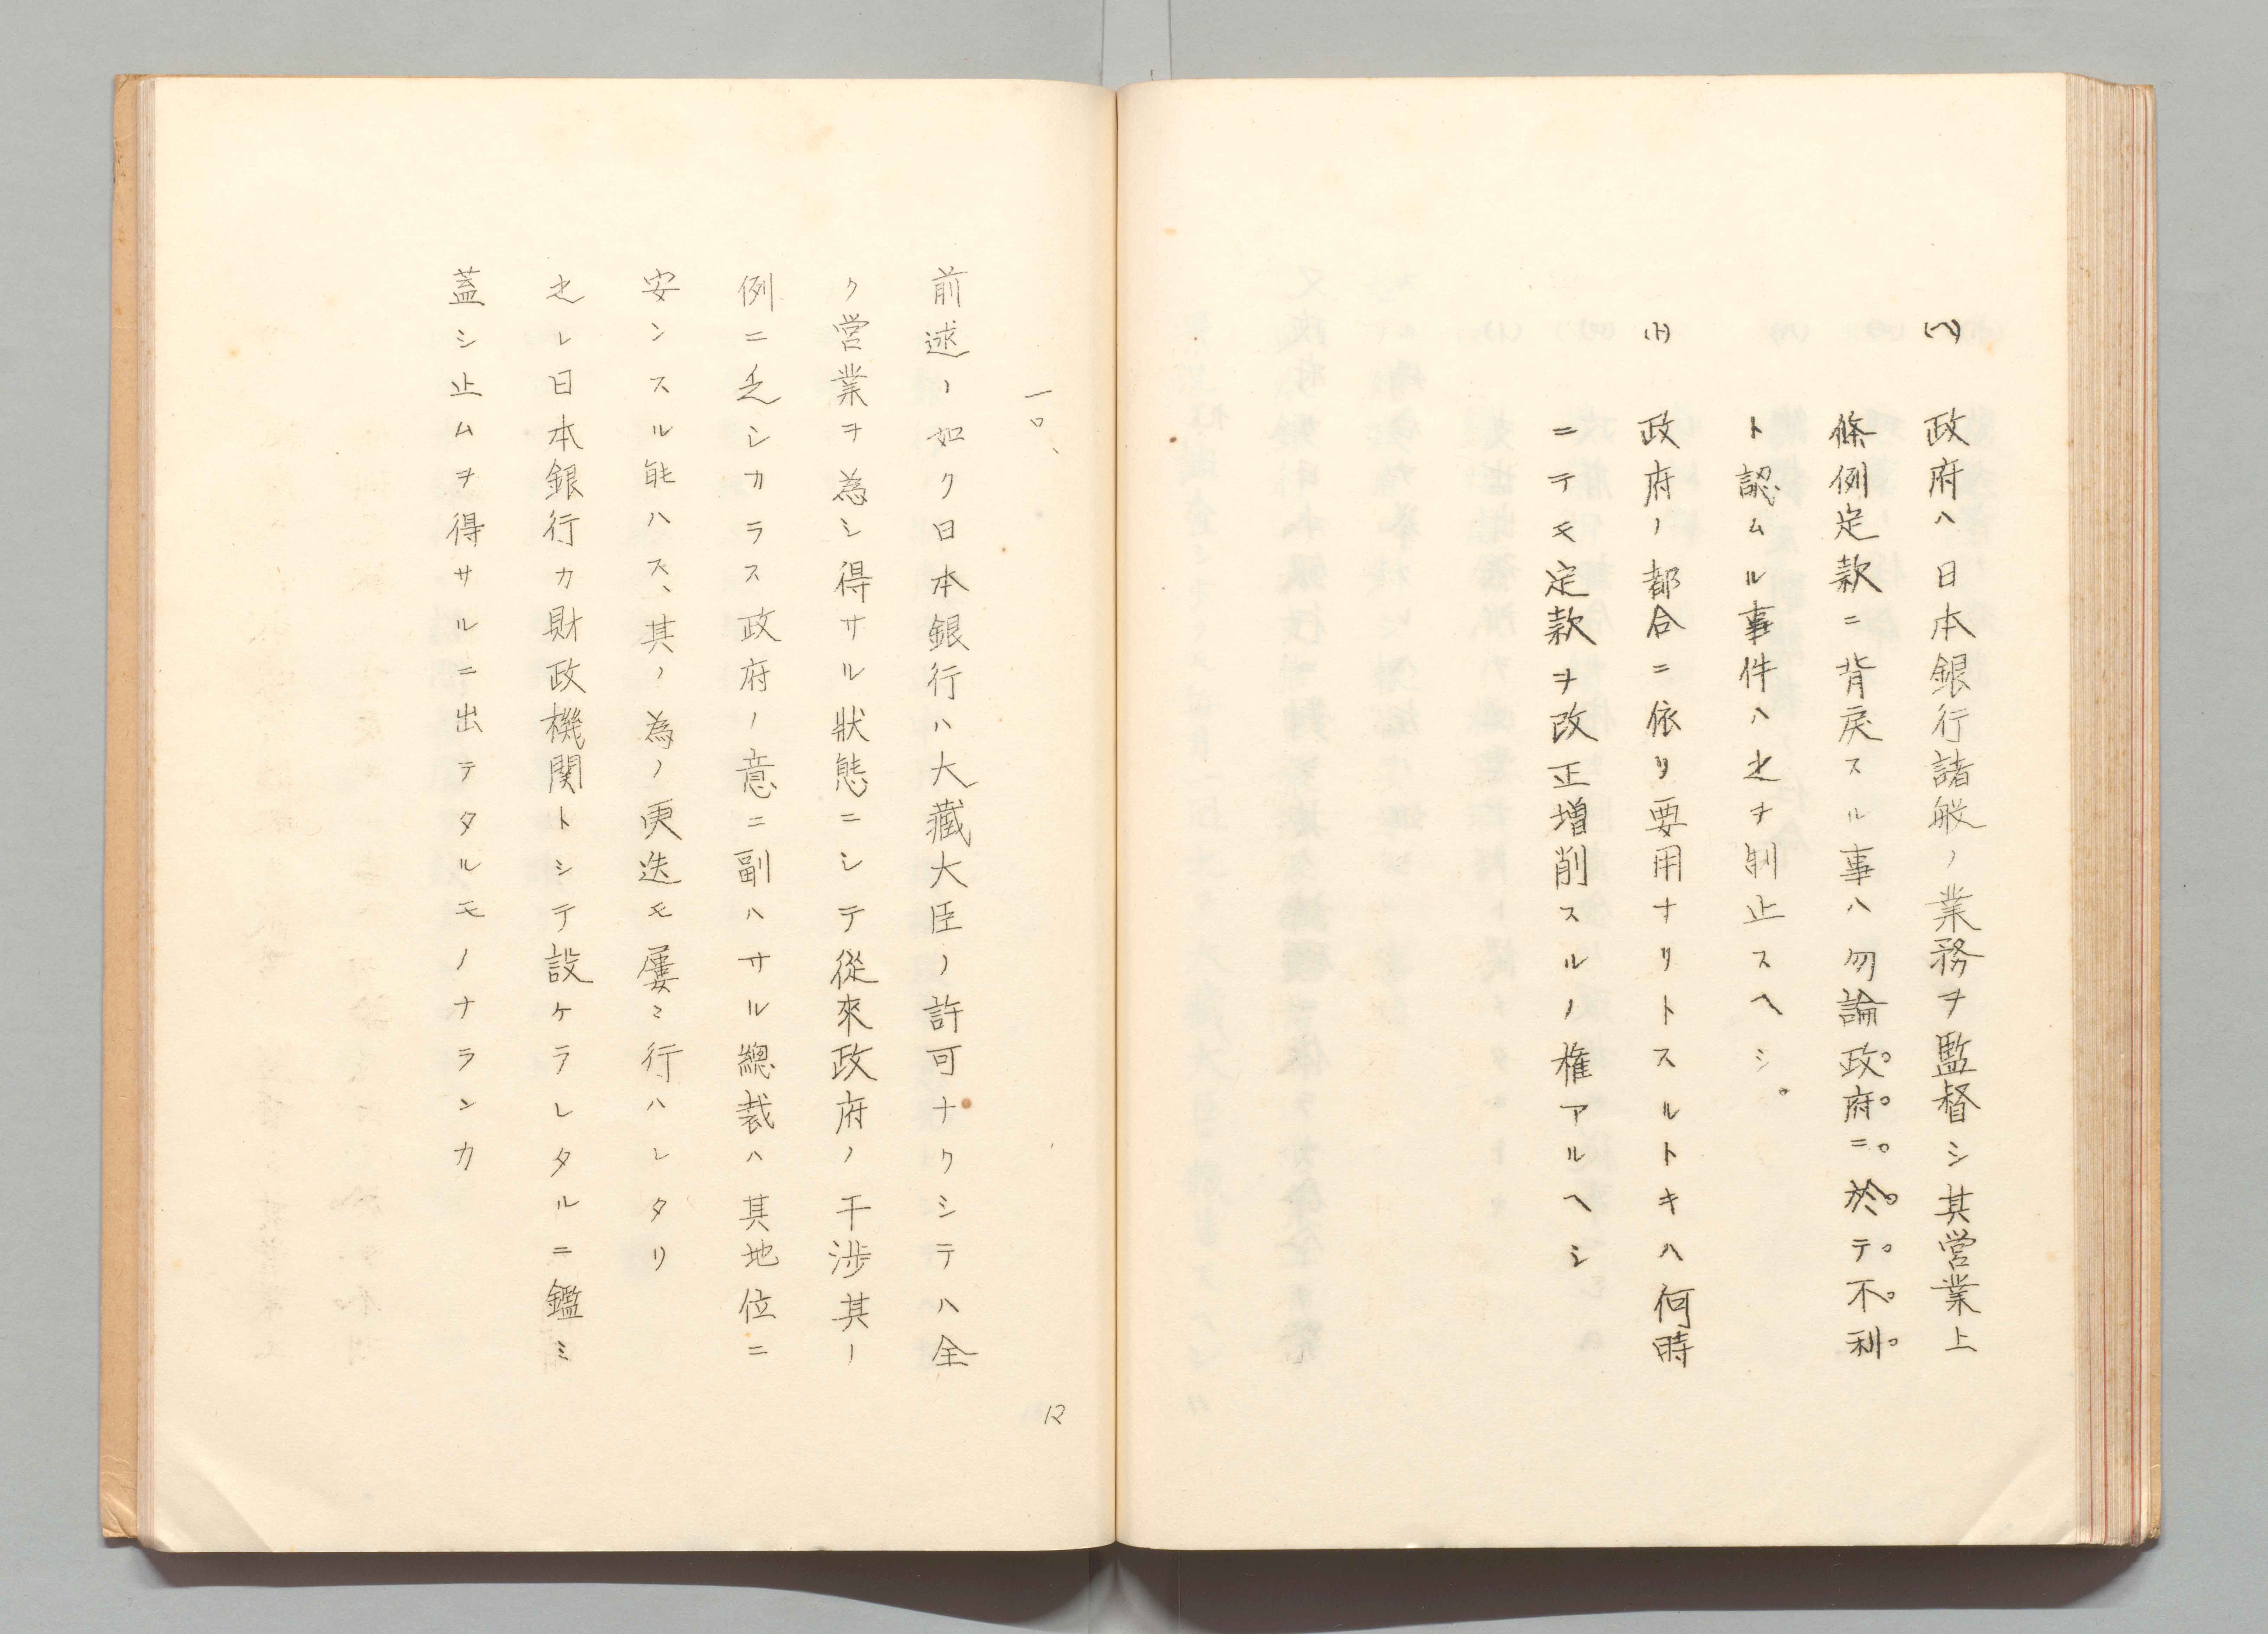 (ヘ) 政府ハ日本銀行諸般ノ業務ヲ監督シ其営業上
條例定款ニ背戻スル事ハ勿論政府ニ於テ不利
ト認ムル事件ハ之ヲ制止スヘシ。
(ト) 政府ノ都合ニ依リ要用ナリトスルトキハ何時
ニテモ定款ヲ改正増削スルノ権アルヘシ
一〇、
前述ノ如ク日本銀行ハ大藏大臣ノ許可ナクシテハ全
ク営業ヲ為シ得サル狀態ニシテ従來政府ノ干渉其ノ
例ニ乏シカラス政府ノ意ニ副ハサル總裁ハ其地位ニ
安ンスル能ハス、其ノ為ノ更迭モ屢〻行ハレタリ
之レ日本銀行カ財政機関トシテ設ケラレタルニ鑑ミ
蓋シ止ムヲ得サルニ出テタルモノナランカ
12